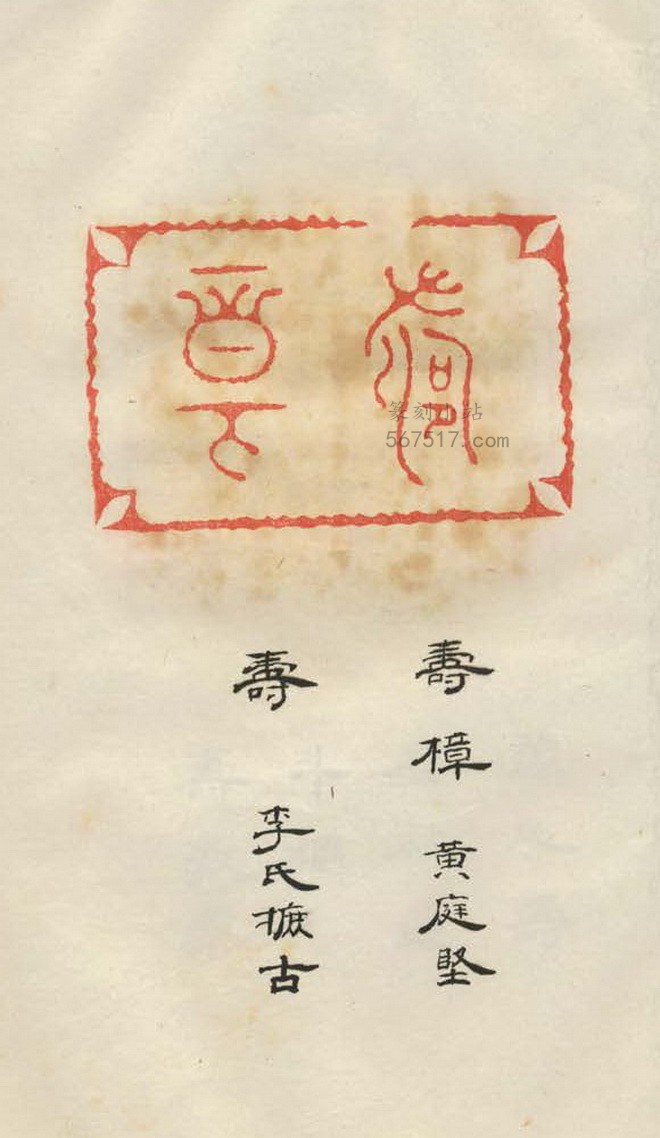 壽樟 黄庭堅
壽 李氏摭古
篆刻小站
567517.com